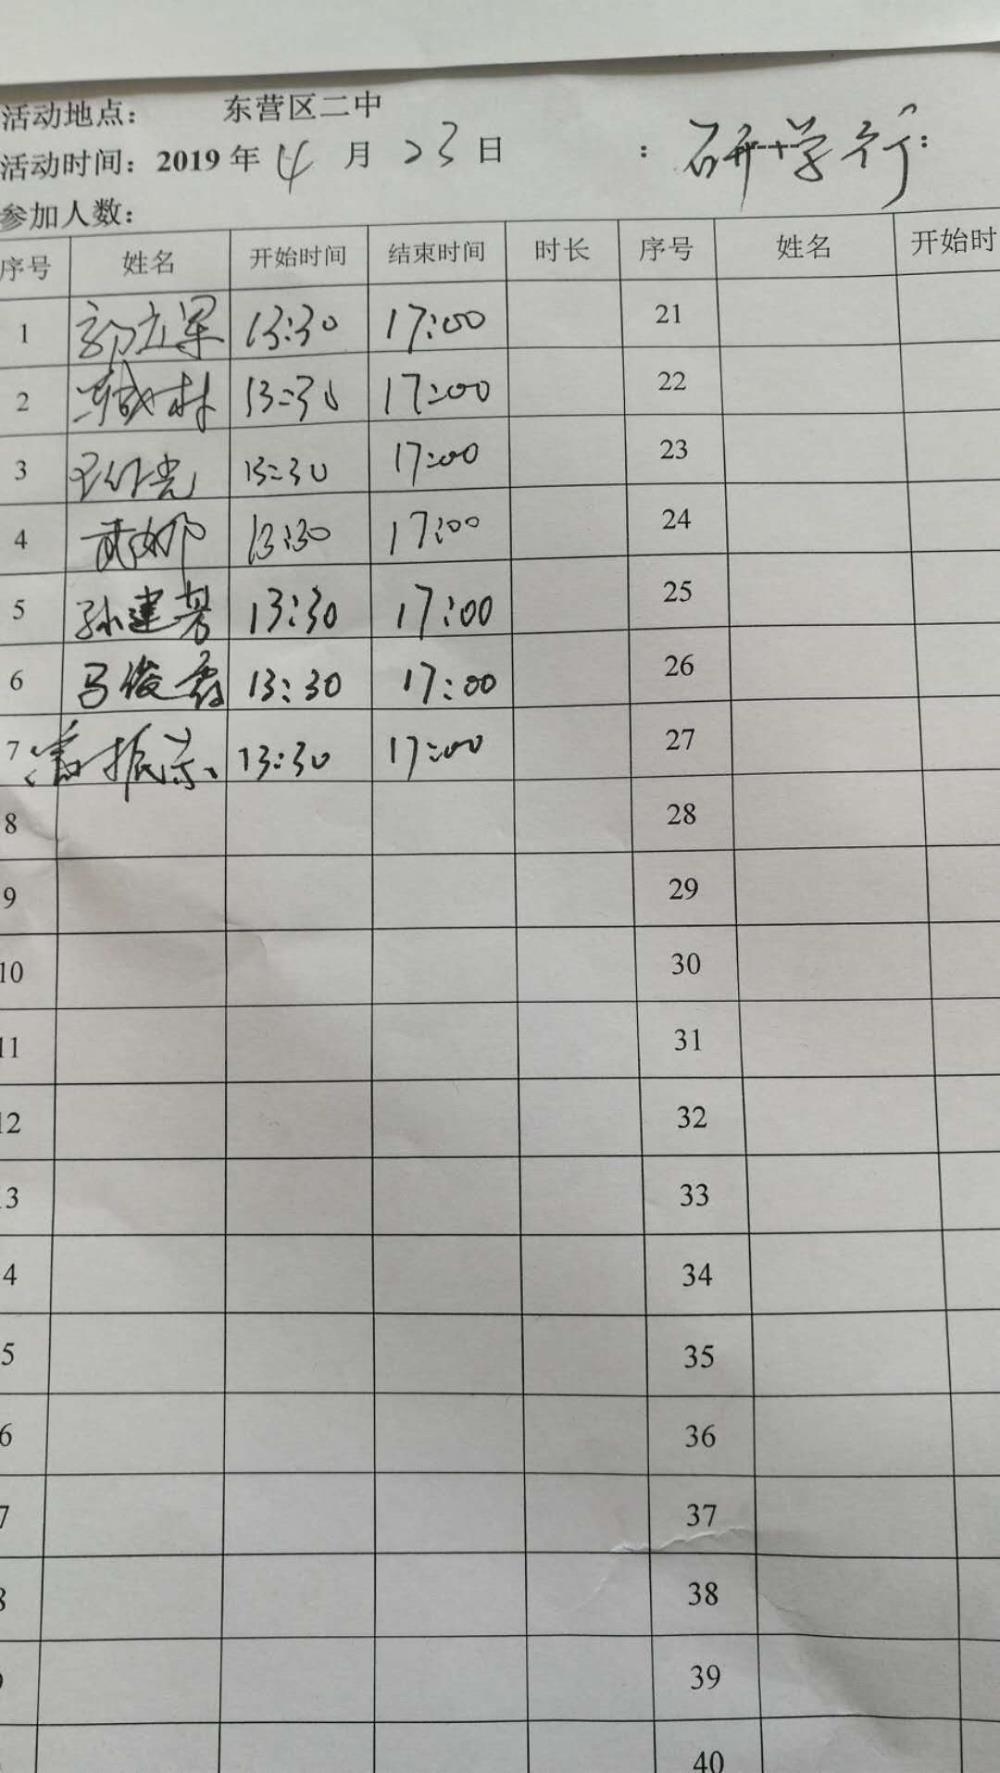 活动地点： 东营区二中
活动时间：2019年 4 月 23 日 ： 研学行：
参加人数：
序号 姓名 开始时间 结束时间 时长 序号 姓名 开始时
1 郭立军 13:30 17:00 21
2 13:30 17:00 22
3 13:30 17:00 23
4 武娜 13:30 17:00 24
5 孙建芳 13:30 17:00 25
6 马俊霞 13:30 17:00 26
7 振宗 13:30 17:00 27
8 28
9 29
10 30
11 31
12 32
3 33
4 34
5 35
6 36
7 37
8 38
39
40